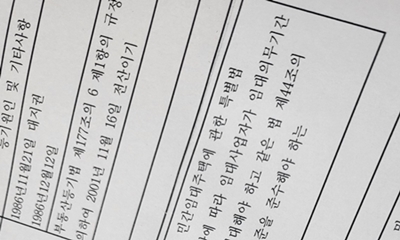 등기원인 및 기타사항
1986년11월21일 대지권
1986년12월12일
부동산등기법 제177조의 6 제1항의 규정
의하여 2001년 11월 16일 전산이기
민간임대주택에 관한 특별법
에 따라 임대사업자가 임대의무기간
대해야 하고 같은 법 제44조의
준을 준수해야 하는